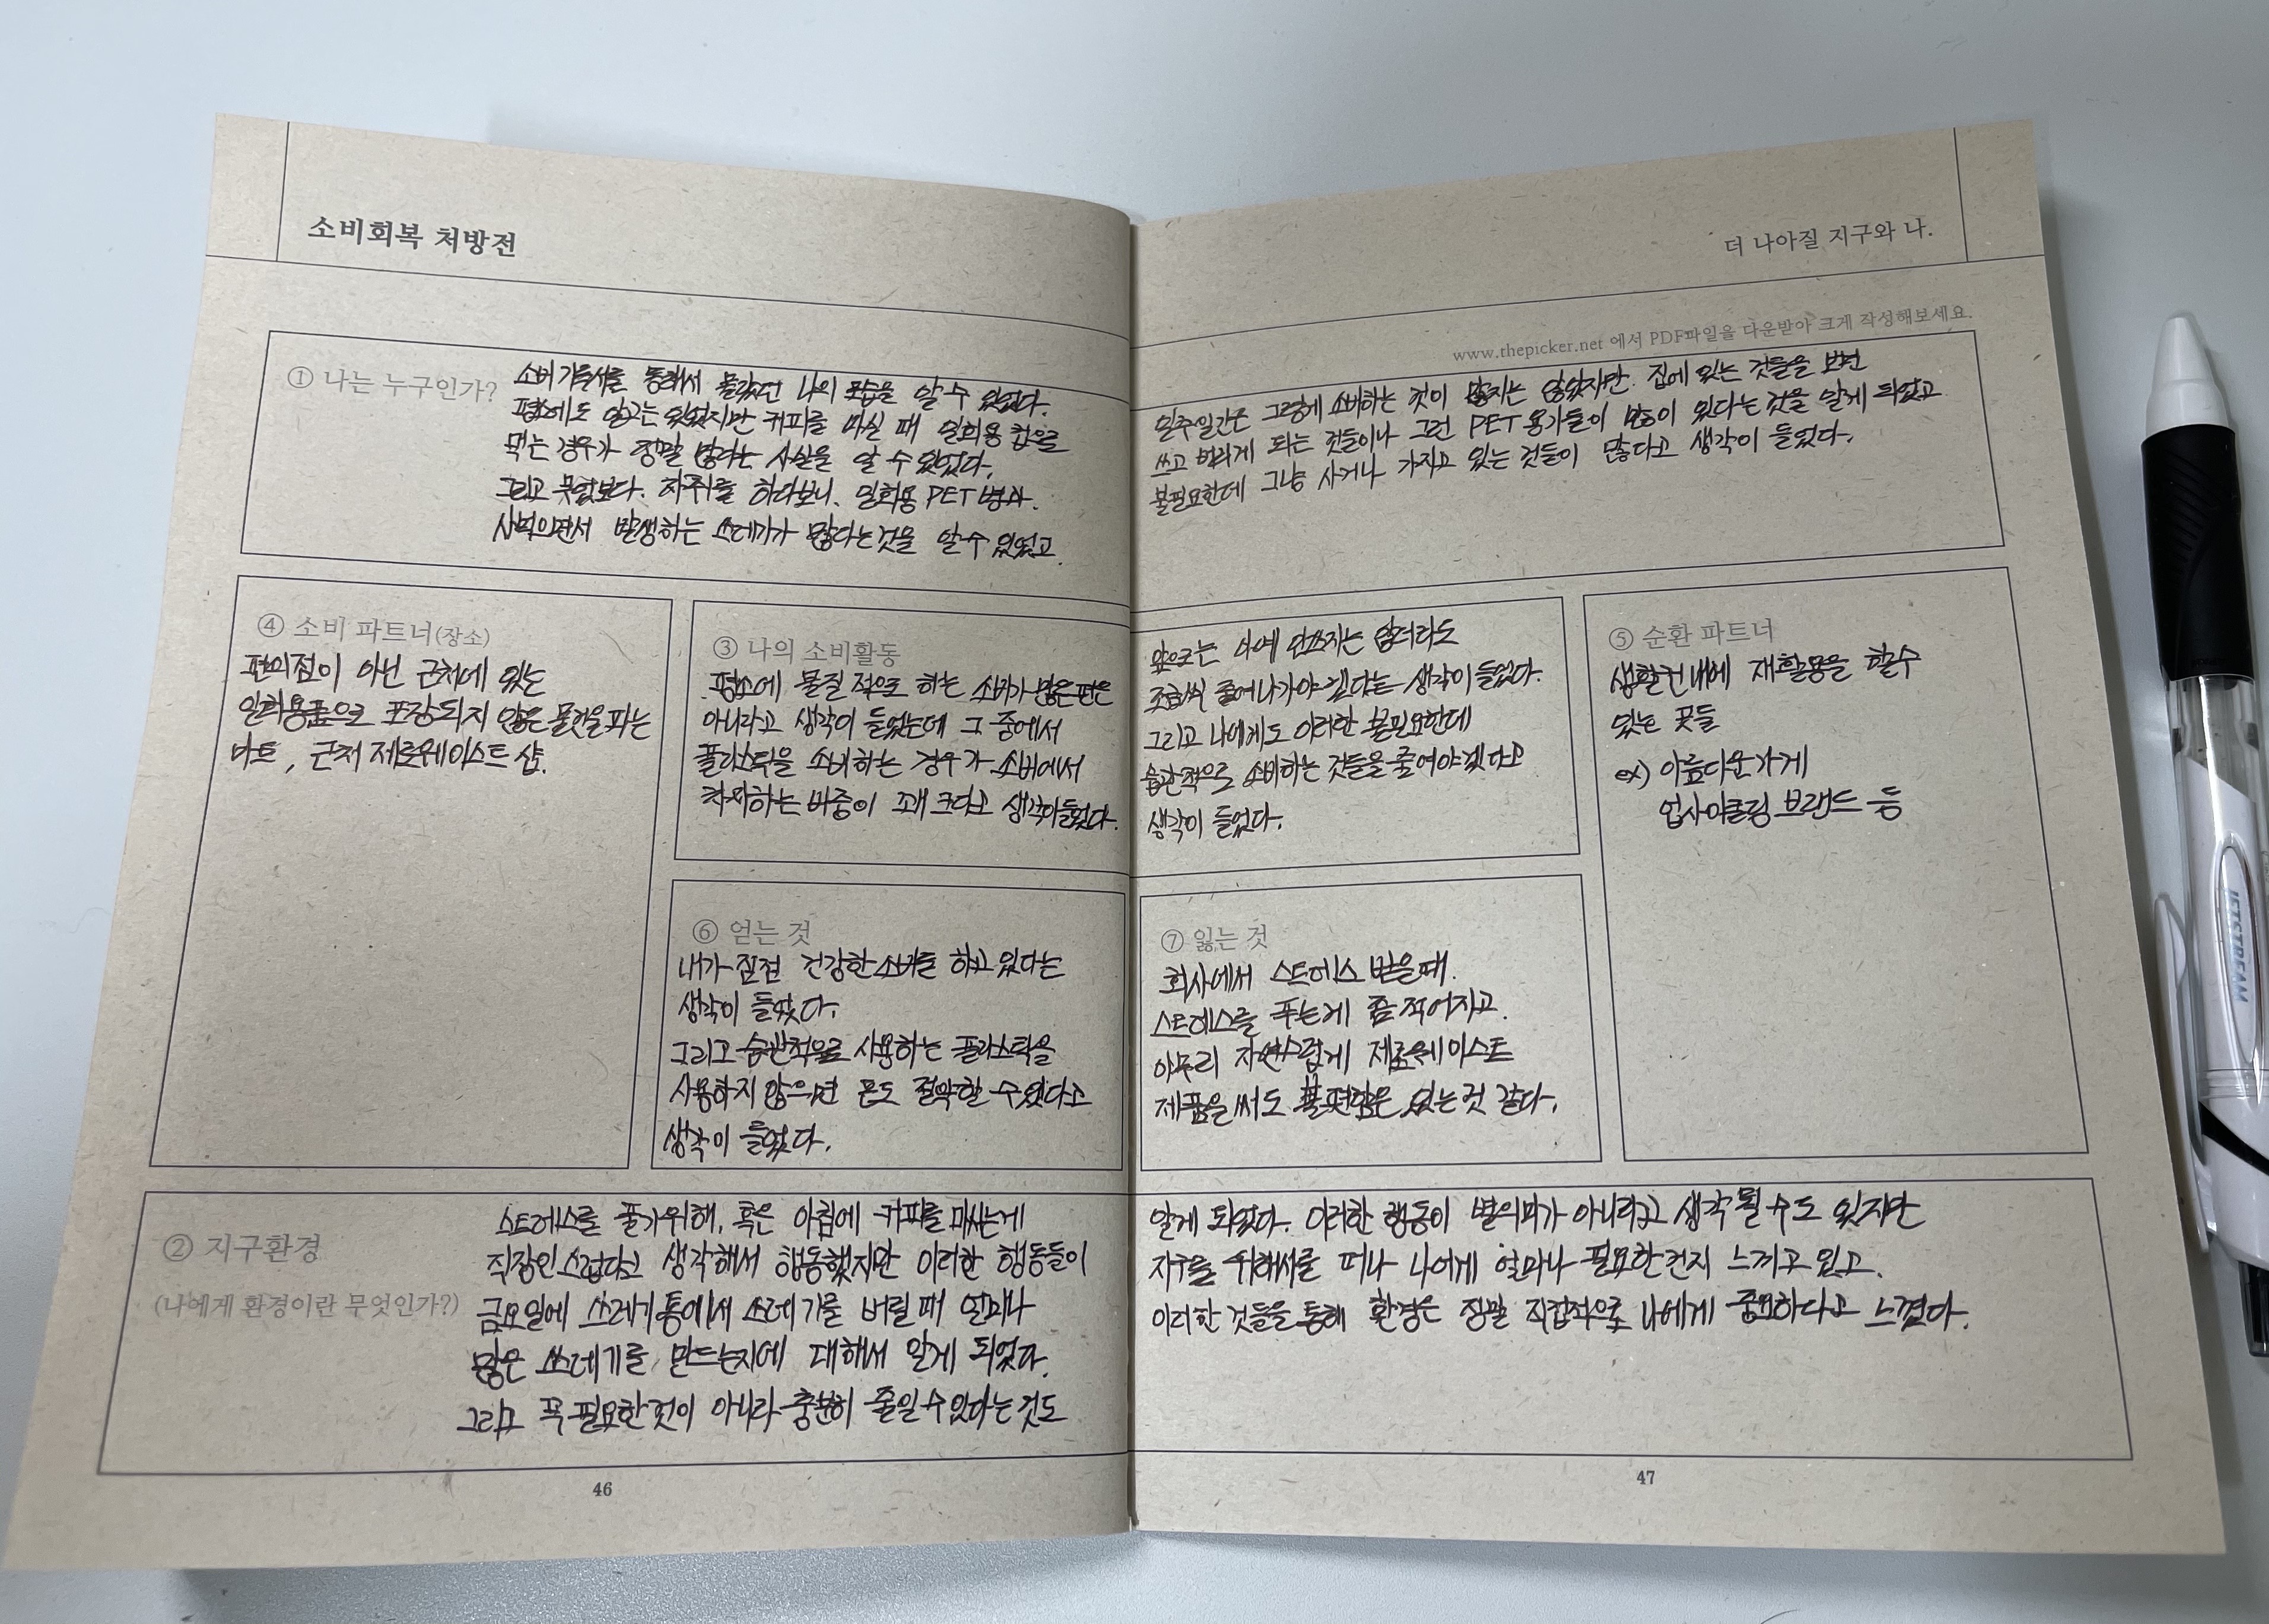 소비회복 처방전
더 나아질 지구와 나.
www.thepicker.net 에서 PDF파일을 다운받아 크게 작성해보세요.
① 나는 누구인가?
소비기록서를 통해서 몰랐던 나의 모습을 알 수 있었다.
평소에도 알고는 있었지만 커피를 마실 때 일회용 컵으로
먹는 경우가 정말 많다는 사실을 알 수 있었다.
그리고 무엇보다. 자취를 하다보니, 일회용 PET병과.
사먹으면서 발생하는 쓰레기가 많다는 것을 알 수 있었고.
일주일간은 그렇게 소비하는 것이 많지는 않았지만. 집에 있는 것들을 보면
쓰고 버리게 되는 것들이나 그런 PET 용기들이 많이 있다는 것을 알게 되었고
불필요한데 그냥 사거나 가지고 있는 것들이 많다고 생각이 들었다.
④ 소비 파트너(장소)
편의점이 아닌 근처에 있는
일회용품으로 포장되지 않은 물건을 파는
마트, 근처 제로웨이스트 샵.
③ 나의 소비활동
평소에 물질적으로 하는 소비가 많은 편은
아니라고 생각이 들었는데 그 중에서
플라스틱을 소비하는 경우가 소비에서
차지하는 비중이 꽤 크다고 생각이들었다.
앞으로는 아예 안쓰지는 않더라도
조금씩 줄여나가야 겠다는 생각이 들었다.
그리고 나에게도 이러한 불필요한데
습관적으로 소비하는 것들을 줄여야겠다고
생각이 들었다.
⑤ 순환 파트너
생활권 내에 재활용을 할수
있는 곳들
ex) 아름다운가게
업사이클링 브랜드 등
⑥ 얻는 것
내가 점점 건강한 소비를 하고 있다는
생각이 들었다.
그리고 습관적으로 사용하는 플라스틱을
사용하지 않으면 돈도 절약할 수 있다고
생각이 들었다.
⑦ 잃는 것
회사에서 스트레스 받을때.
스트레스를 푸는게 좀 적어지고.
아무리 자연스럽게 제로웨이스트
제품을 써도 불편함은 있는 것 같다.
② 지구환경
(나에게 환경이란 무엇인가?)
스트레스를 풀기위해, 혹은 아침에 커피를 마시는게
직장인스럽다고 생각해서 행동했지만 이러한 행동들이
금요일에 쓰레기통에서 쓰레기를 버릴 때 얼마나
많은 쓰레기를 만드는지에 대해서 알게 되었다.
그리고 꼭 필요한 것이 아니라 충분히 줄일 수 있다는 것도
알게 되었다. 이러한 행동이 별의미가 아니라고 생각 될 수도 있지만
지구를 위해서를 떠나 나에게 얼마나 필요한건지 느끼고 있고.
이러한 것들을 통해 환경은 정말 직접적으로 나에게 중요하다고 느꼈다.
46
47
JETSTREAM